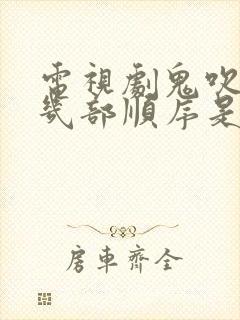 電視劇鬼吹
幾部順序是
房車齊全